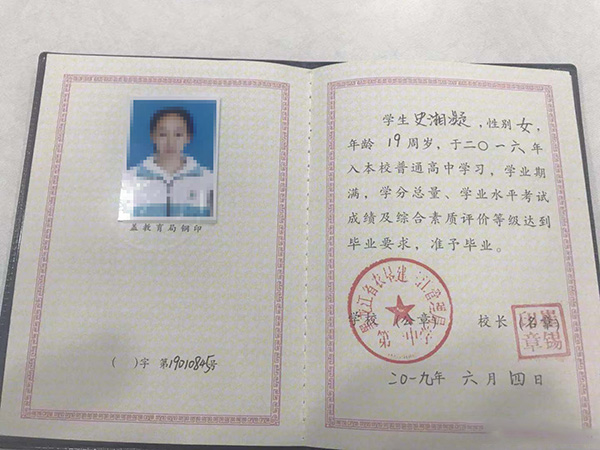 盖教育局钢印
( )字 第19010845号
学生 史湘凝,性别 女,
年龄 19 周岁,于二〇一六年
入本校普通高中学习,学业期
满,学分总量、学业水平考试
成绩及综合素质评价等级达到
毕业要求,准予毕业。
学校 (公章) 校长 (名章)
二〇一九年 六月 四日